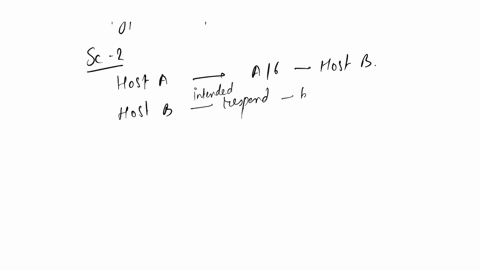 '01 '
Sc-2
Host A → A/6 — Host B.
intended
Host B — respond — b